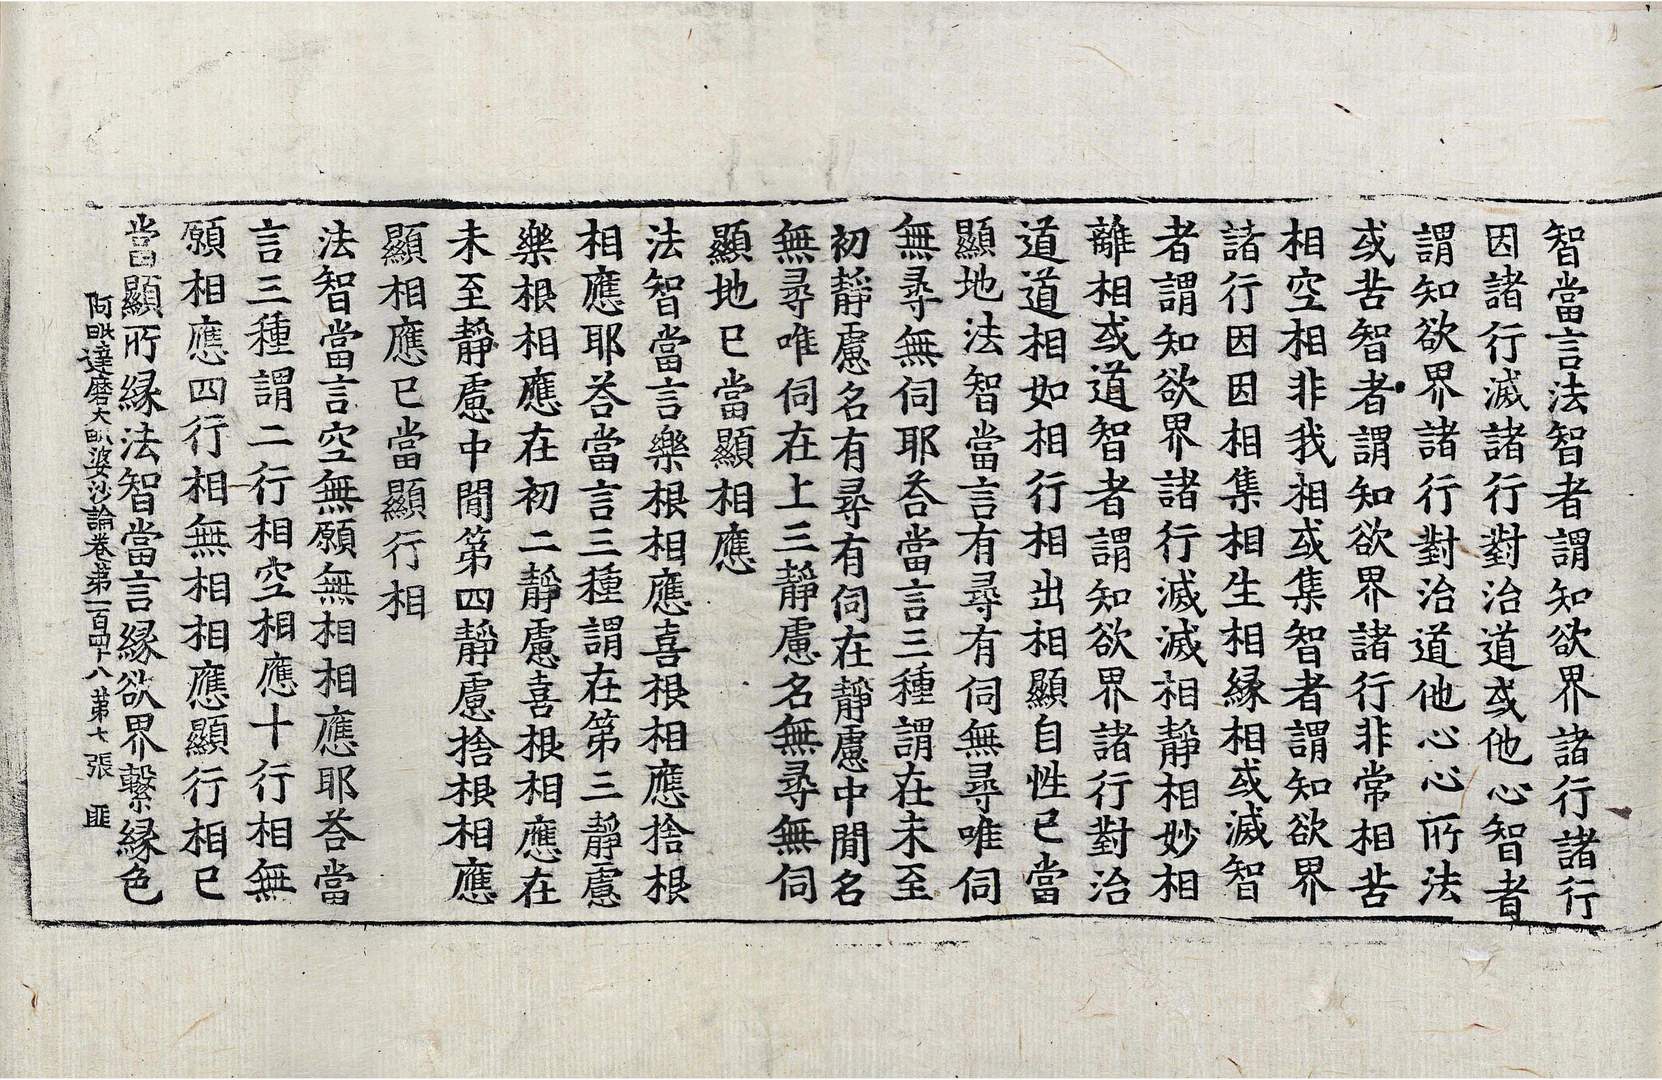 智當言法智者謂知欲界諸行諸行
因諸行滅諸行對治道或他心智者
謂知欲界諸行對治道他心心所法
或苦智者謂知欲界諸行非常相苦
相空相非我相或集智者謂知欲界
諸行因因相集相生相縁相或滅智
者謂知欲界諸行滅滅相靜相妙相
離相或道智者謂知欲界諸行對治
道道相如相行相出相顯自性已當
顯地法智當言有尋有伺無尋唯伺
無尋無伺耶荅當言三種謂在未至
初靜慮名有尋有伺在靜慮中閒名
無尋唯伺在上三靜慮名無尋無伺
顯地已當顯相應
法智當言樂根相應喜根相應捨根
相應耶荅當言三種謂在第三靜慮
樂根相應在初二靜慮喜根相應在
未至靜慮中閒第四靜慮捨根相應
顯相應已當顯行相
法智當言空無願無相相應耶荅當
言三種謂二行相空相應十行相無
願相應四行相無相相應顯行相已
當顯所縁法智當言縁欲界繫縁色
阿毗達磨大毗婆沙論卷第一百四十八 第七張 匪